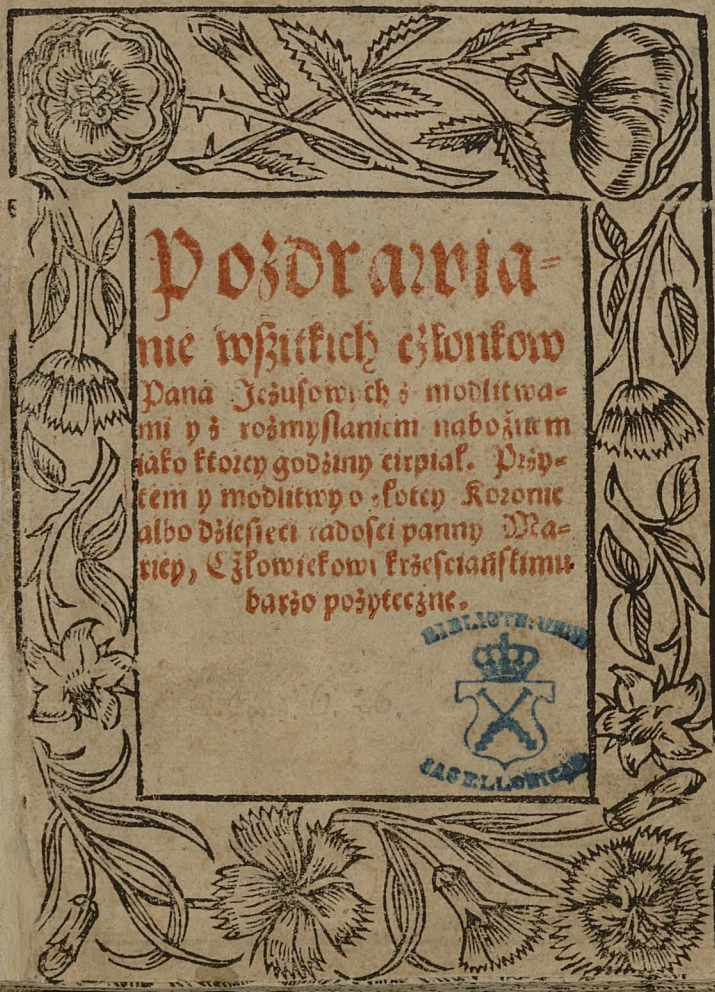 Pozdrawia=
nie wſzitkich cżłonkow
Pana Jezuſowych z modlitwa=
mi y z rozmyſlanim nabożnem
iáko ktorey godziny cirpiał. Przy=
tem y modlitwy o złotey Koronie
albo dzieſięci radoſci panny Ma=
riey, Cżłowiekowi krzeſciańſkimu
barzo pożyteczne.
BIBLIOTH. UNIV.
JAGELLONICAE